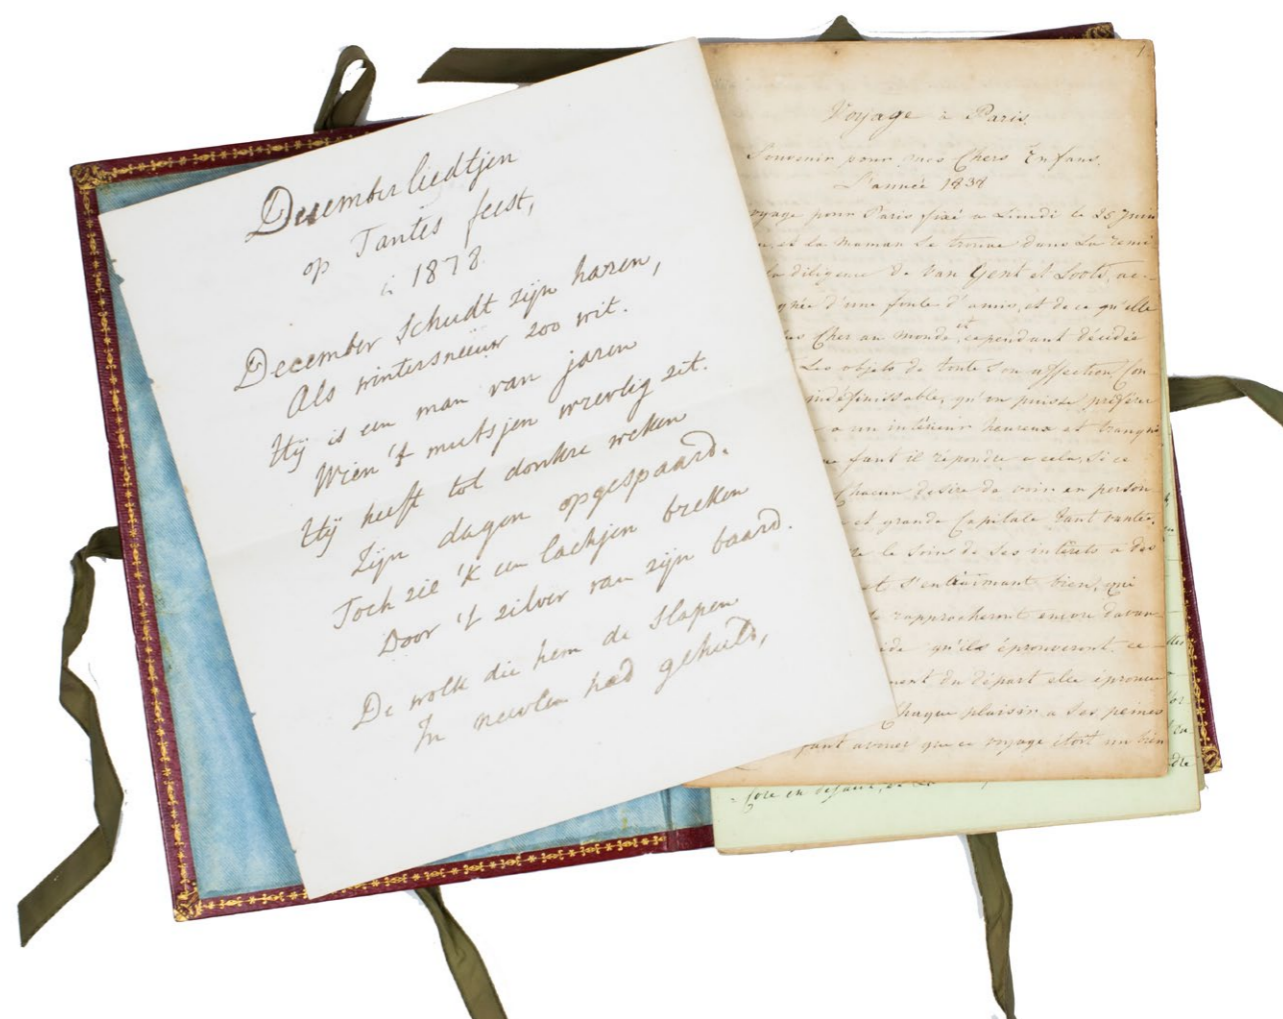 Decemberliedtjen
op Tantes feest,
in 1878.
December schudt zijn haren,
Als wintersneeuw zoo wit.
Hij is een man van jaren
Wien 't mutsjen wrevlig zit.
Hij heeft tot donkre weken
Zijn dagen opgespaard.
Toch zie 'k een lachjen breken
Door 't zilver van zijn baard.
De wolk die hem de slapen
In nevlen had gehuld,
1
Voyage à Paris.
Souvenir pour mes Chers Enfans.
L'année 1838
voyage pour Paris fixé a Lundi le 25 Juin
et la Maman se trouve dans la remi-
la diligence de Van Gent et Loots, ac-
gnée d'une foule d'amis, et de ce qu'elle
Cher au monde, et cependant décidée
Les objets de toute son affection, Con-
indéfinissable, qu'on puisse préférer
a un intérieur heureux et tranqui
faut il répondre a cela, Si ce
Chacun desire de voir en person
et grande Capitale tant vantée.
le Soins de Ses intérêts a des
et S'entraimant bien, qui
rapprocheront encore davan
qu'ils éprouveront, ce
ment du départ elle éprouve
Chaque plaisir a Ses peines
faut avouer que ce voyage étoit un bien